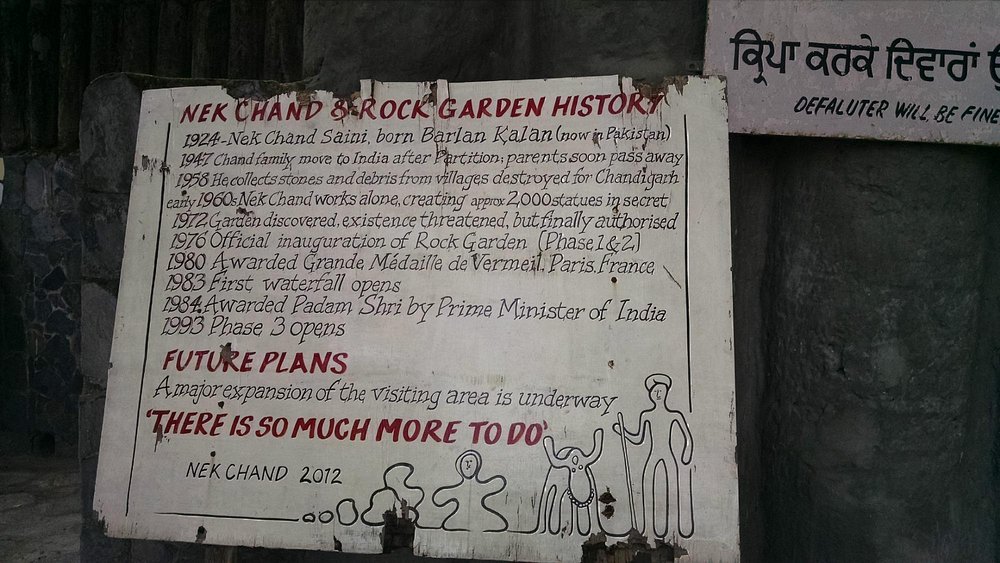 NEK CHAND & ROCK GARDEN HISTORY
1924-Nek Chand Saini, born Barlan Kalan (now in Pakistan)
1947 Chand family move to India after Partition; parents soon pass away
1958 He collects stones and debris from villages destroyed for Chandigarh
early 1960s Nek Chand works alone, creating approx 2,000 statues in secret
1972 Garden discovered, existence threatened, but finally authorised
1976 Official inauguration of Rock Garden (Phase 1 & 2,)
1980 Awarded Grande Médaille de Vermeil, Paris, France,
1983 First waterfall opens
1984 Awarded Padam Shri by Prime Minister of India
1993 Phase 3 opens
FUTURE PLANS
A major expansion of the visiting area is underway
'THERE IS SO MUCH MORE TO DO'
NEK CHAND 2012
ਕ੍ਰਿਪਾ ਕਰਕੇ ਦਿਵਾਰਾਂ
DEFALUTER WILL BE FINE